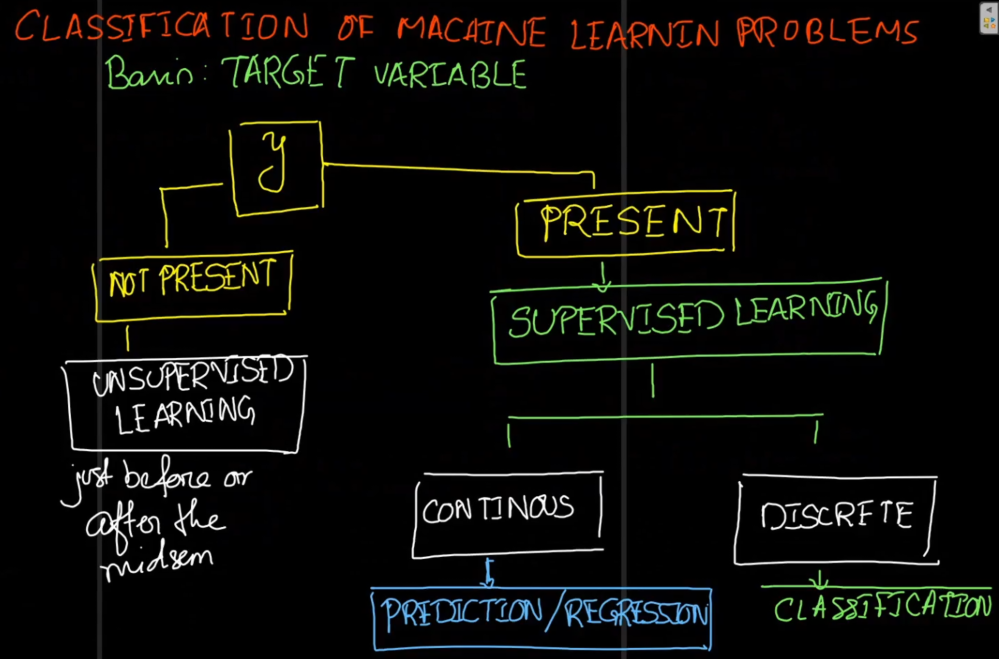 CLASSIFICATION OF MACAINE LEARNIN PROBLEMS
Basis: TARGET VARIABLE
y
PRESENT
NOT PRESENT
SUPERVISED LEARNING
UNSUPERVISED
LEARNING
just before or
after the
midsem
CONTINOUS
DISCRETE
PREDICTION/REGRESSION
CLASSIFICATION